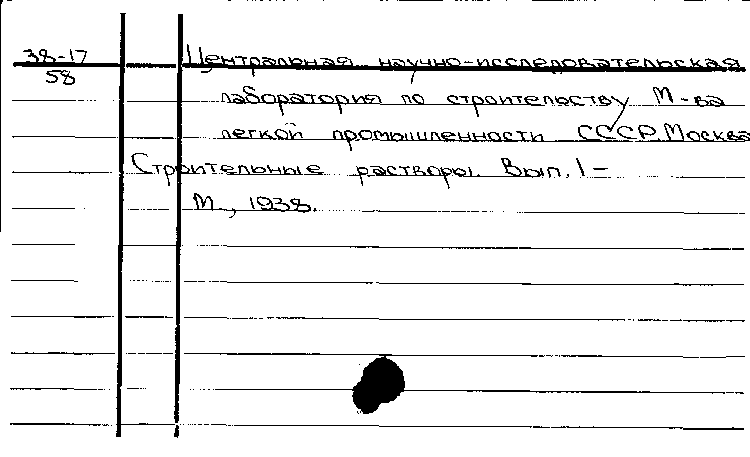 38-17
58
Центральная научно-исследовательская
лаборатория по строительству М-ва
легкой промышленности СССР. Москва
Строительные растворы. Вып. 1-
М., 1938.